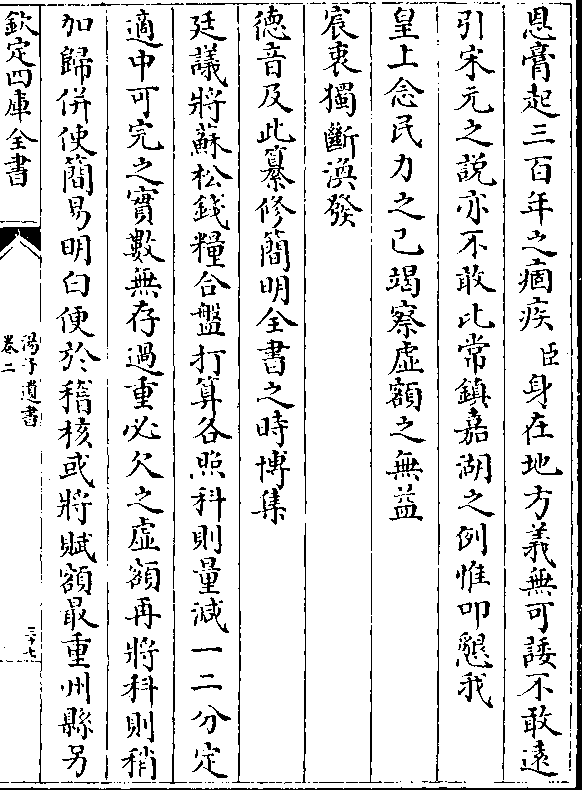 恩膏起三百年之痼疾臣身在地方義無可諉不敢遠
引宋元之説亦不敢比常鎮嘉湖之例惟叩懇我
皇上念民力之已竭察虛額之無益
宸衷獨斷渙發
德音及此纂修簡明全書之時博集
廷議將蘇松錢糧合盤打算各照科則量減一二分定
適中可完之實數無存過重必欠之虛額再將科則稍
加歸併使簡易明白便於稽核或將賦額最重州縣另
欽定四庫全書
湯子遺書
卷二
三十七